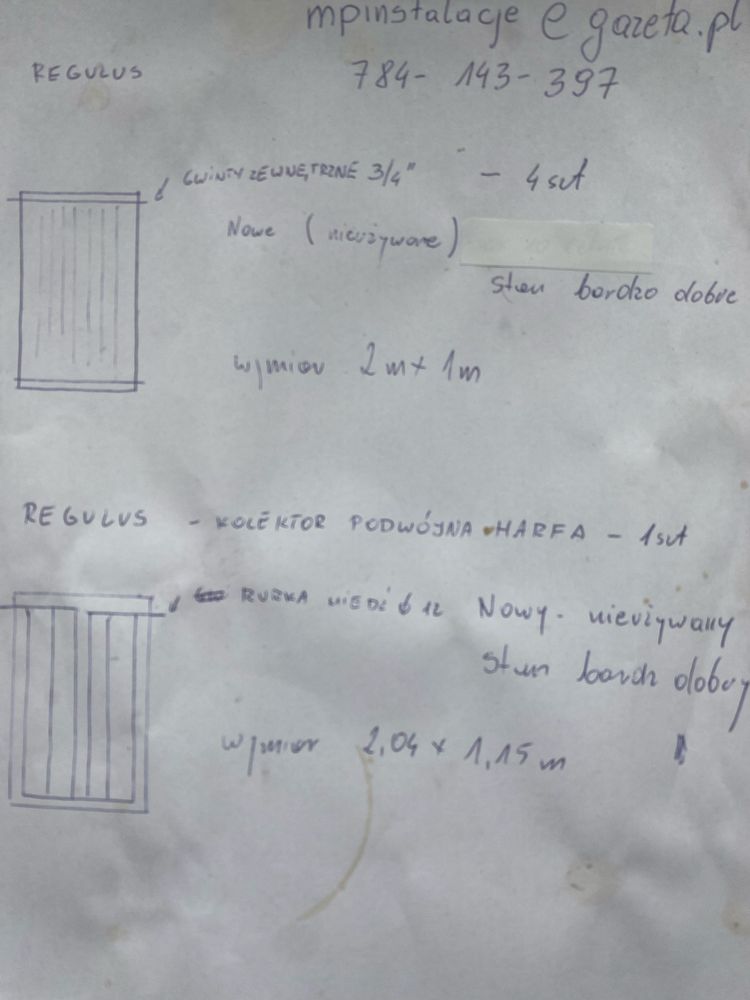 mpinstalacje @ gazeta.pl
REGULUS 784- 143- 397
GWINTY ZEWNĘTRZNE 3/4" - 4 szt
Nowe (nieużywane)
Stan bardzo dobre
wymiar 2m x 1m
REGULUS - KOLEKTOR PODWÓJNA HARFA - 1szt
RURKA MIEDŹ ϕ 12 Nowy. nieużywany
Stan bardz dobry
wymiar 2,04 x 1,15 m